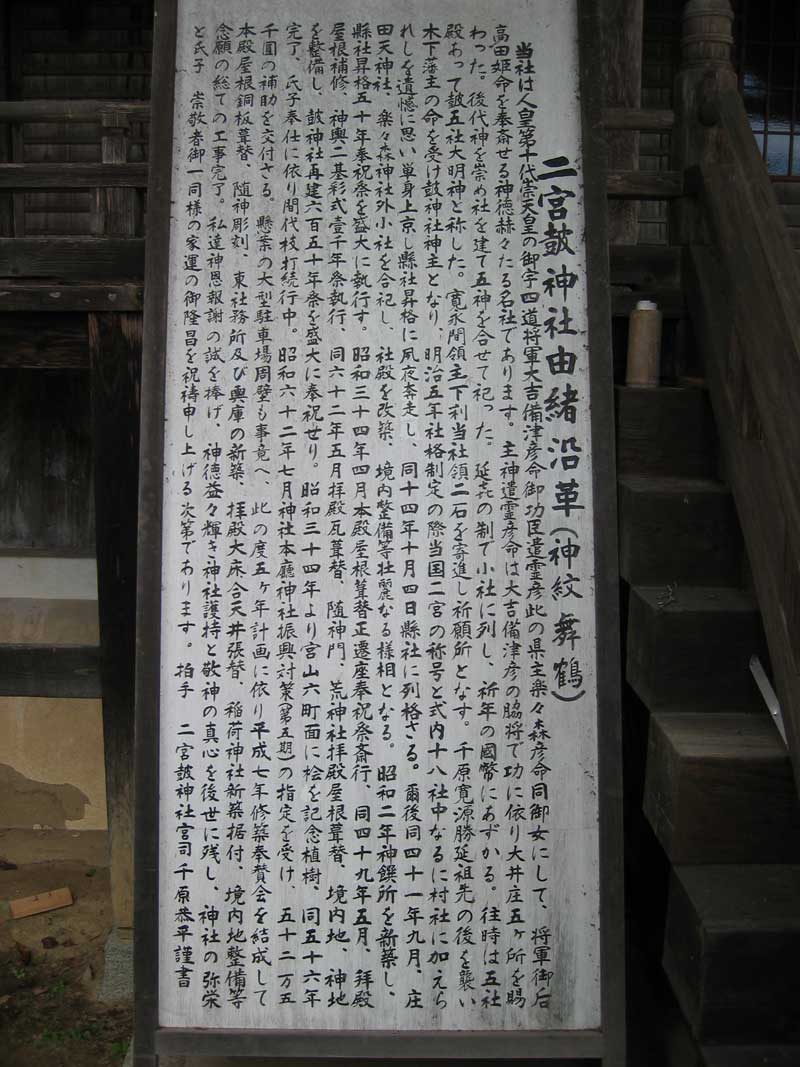 二宮鼓神社由緒沿革(神紋 舞鶴)
当社は人皇第十代崇天皇の御宇四道将軍大吉備津彦命御功臣遣霊彦此の県主楽々森彦命同御女にして、将軍御后
高田姫命を奉斎せる神徳赫々たる名社であります。主神遣霊彦命は大吉備津彦の脇将で功に依り大井庄五ヶ所を賜
わった。後代神を崇め社を建て五神を合せて祀った。延㐂の制で小社に列し、祈年の國幣にあずかる。往時は五社
殿あって鼓五社大明神と称した。寛永間領主下利当社領二石を寄進し祈願所となす。千原寛源勝延祖先の後を襲い
木下藩主の命を受け鼓神社神主となり、明治五年社格制定の際当国二宮の称号と式内十八社中なるに村社に加えら
れしを遺憾に思い単身上京し縣社昇格に夙夜奔走し、同十四年十月四日縣社に列格さる。爾後同四十一年九月、庄
田天神社、楽々森神社外小社を合祀し、社殿を改築、境内整備等壮麗なる様相となる。昭和二年神饌所を新築し、
縣社昇格五十年奉祝祭を盛大に執行す。昭和三十四年四月本殿屋根葺替正遷座奉祝祭斎行、同四十九年五月、拜殿
屋根補修、神輿二基彩式壹千年祭執行、同六十二年五月拜殿瓦葺替、随神門、荒神社拜殿屋根葺替、境内地、神地
を整備し、鼓神社再建六百五十年祭を盛大に奉祝せり。昭和三十四年より宮山六町面に桧を記念植樹、同五十六年
完了、氏子奉仕に依り間代枝打続行中。昭和六十二年七月神社本廳神社振興対策(第五期)の指定を受け、五十二万五
千圓の補助を交付さる。懸案の大型駐車場周壁も事竟へ、此の度五ヶ年計画に依り平成七年修築奉賛会を結成して
本殿屋根銅板葺替、随神彫刻、東社務所及び輿庫の新築、拝殿大床、合天井張替、稲荷神社新築据付、境内地整備等
念願の総ての工事完了。私達神恩報謝の誠を捧げ、神徳益々輝き神社護持と敬神の真心を後世に残し、神社の弥栄
と氏子 崇敬者御一同様の家運の御隆昌を祝祷申し上げる次第であります。拍手 二宮鼓神社宮司千原恭平謹書